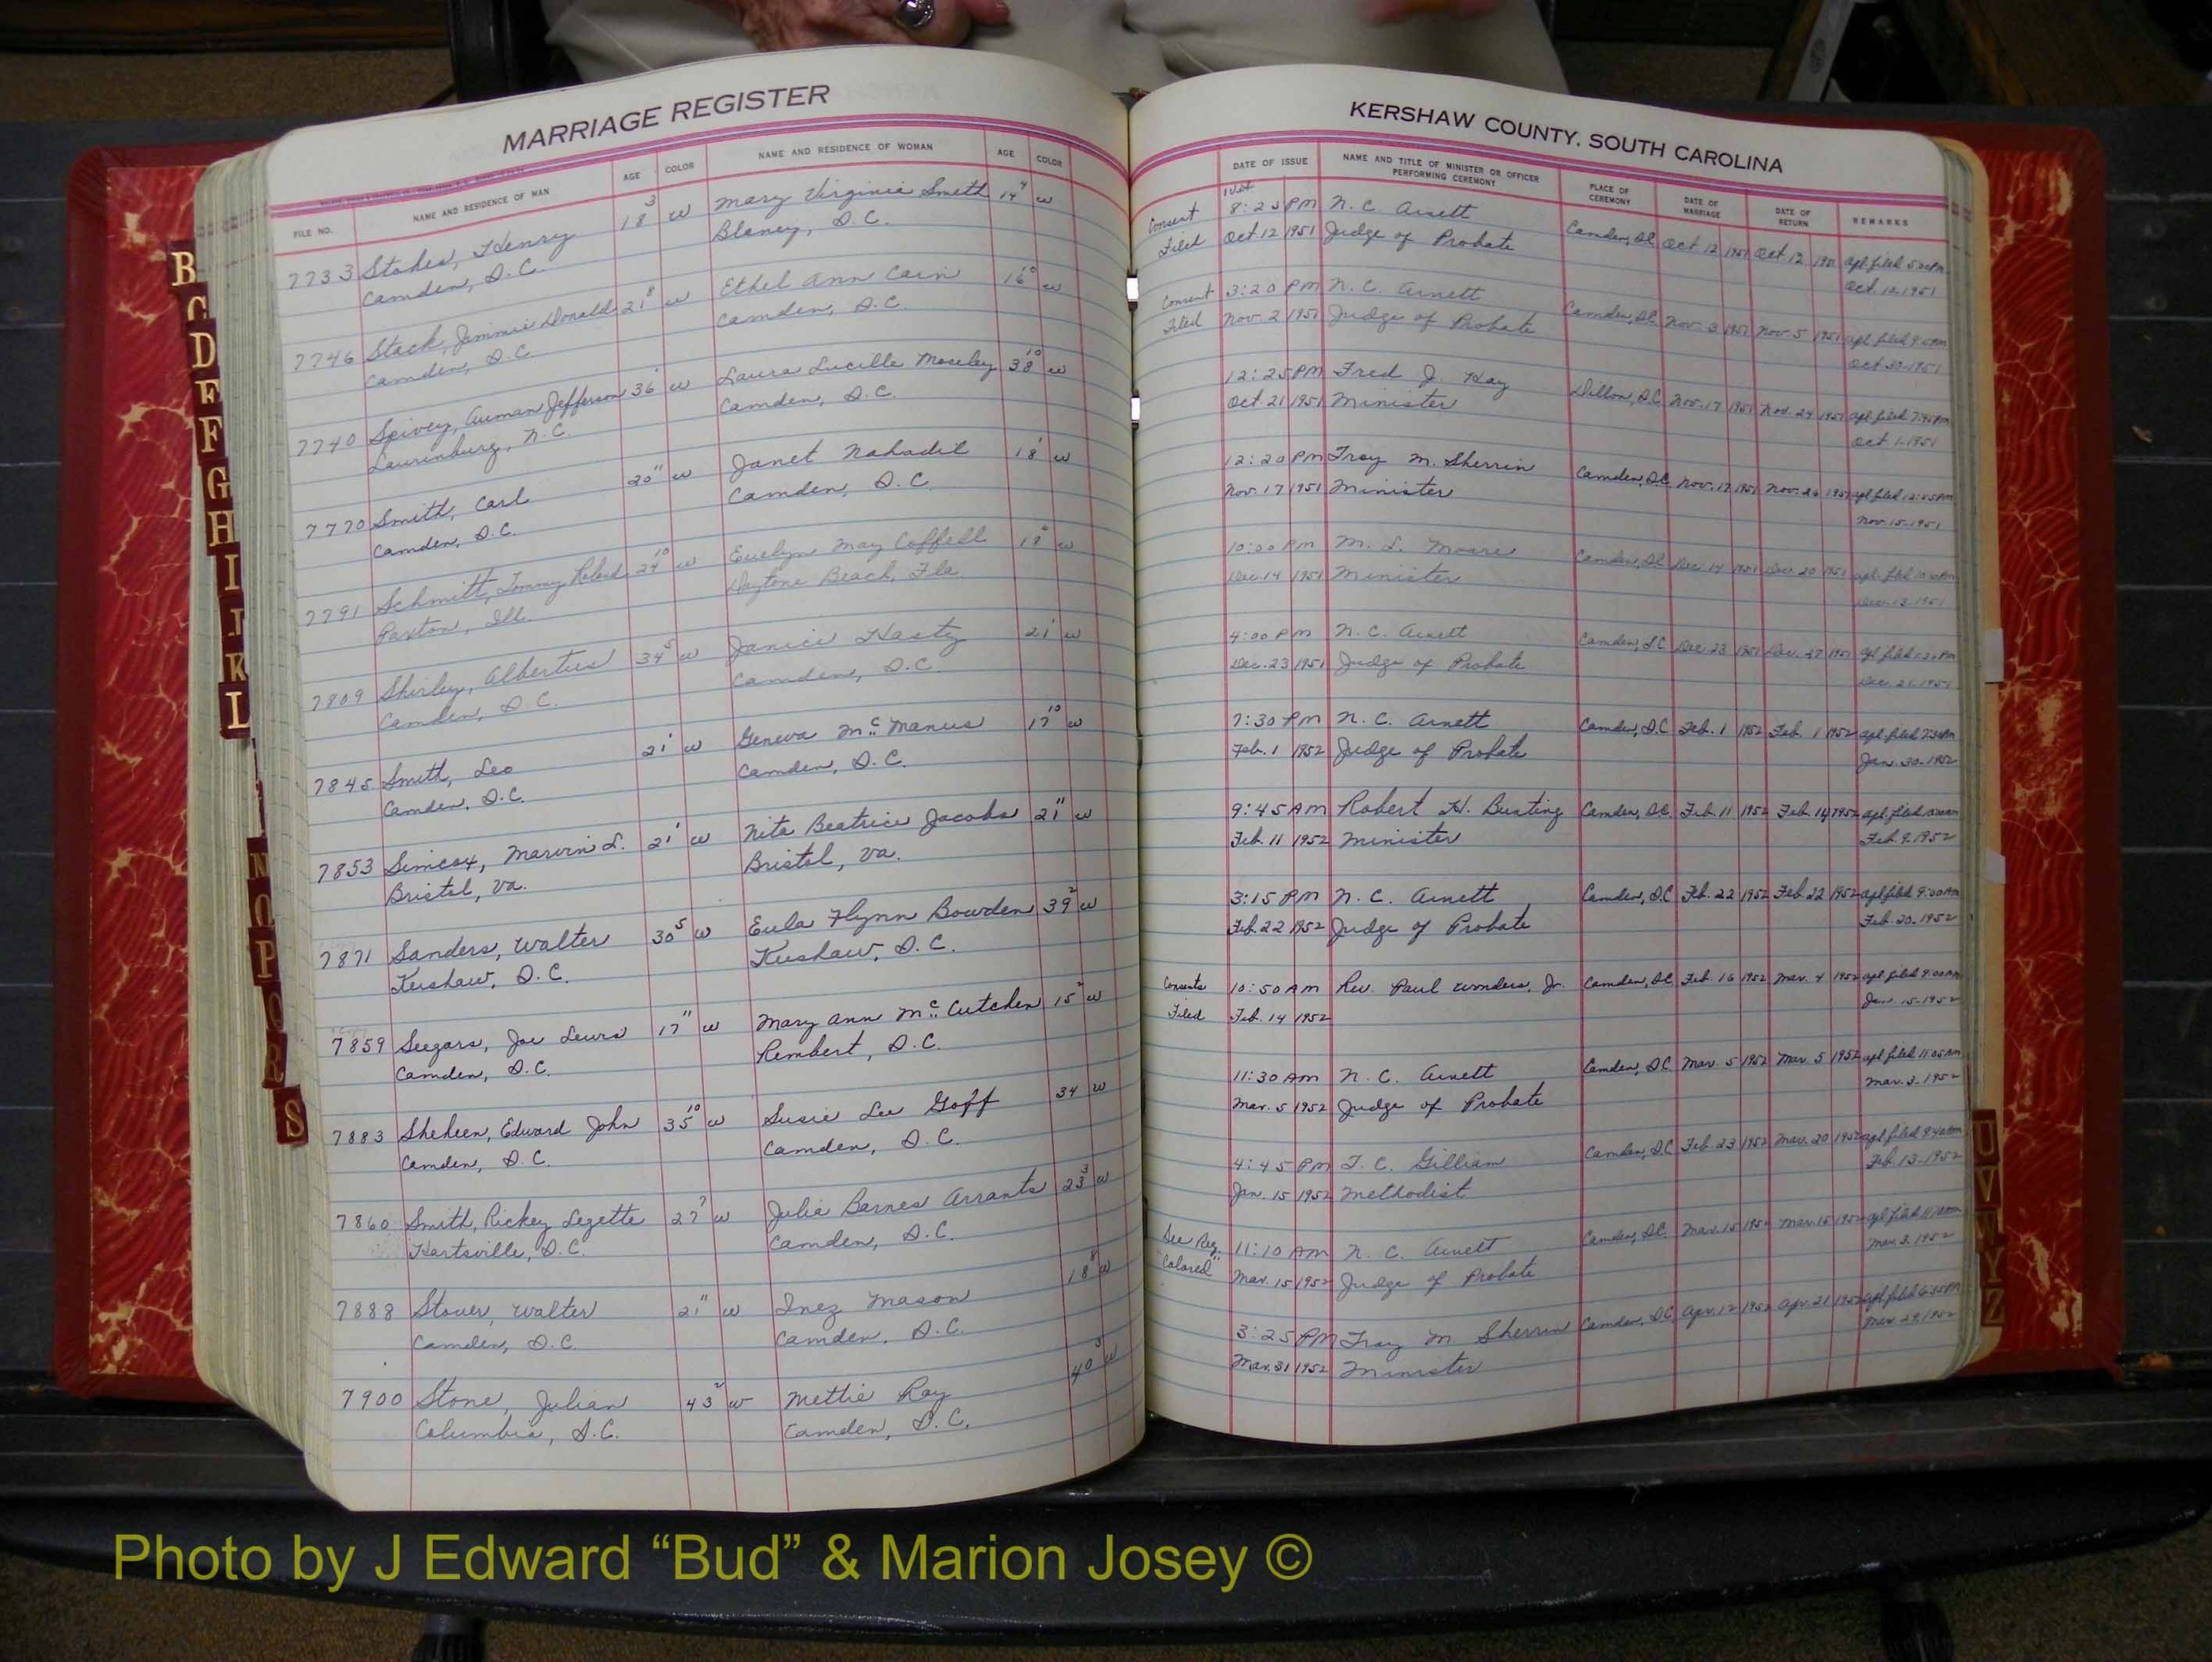 MARRIAGE REGISTER
FILE NO. NAME AND RESIDENCE OF MAN AGE COLOR NAME AND RESIDENCE OF WOMAN AGE COLOR
7733 Stokes, Henry 18 3 w Mary Virginia Smith 14 4 w
Camden, S.C. Blaney, S.C.
7746 Stack, Jimmie Donald 21 8 w Ethel Ann Cain 16 10 w
Camden, S.C. Camden, S.C.
7740 Spivey, Auman Jefferson 36 1 w Laura Lucille Moseley 38 10 w
Laurinburg, N.C. Camden, S.C.
7770 Smith, Carl 20 11 w Janet Nahadil 18 1 w
Camden, S.C. Camden, S.C.
7791 Schmitt, Tommy Roland 24 10 w Evelyn May Coffell 18 w
Paxton, Ill. Daytona Beach, Fla.
7809 Shirley, Albertus 34 5 w Janice Hasty 21 1 w
Camden, S.C. Camden, S.C.
7845 Smith, Leo 21 1 w Geneva McManus 17 10 w
Camden, S.C. Camden, S.C.
7853 Simcox, Marvin L. 21 1 w Nita Beatrice Jacobs 21 11 w
Bristol, Va. Bristol, Va.
7871 Sanders, Walter 30 5 w Eula Flynn Bowden 39 2 w
Kershaw, S.C. Kershaw, S.C.
7859 Seegars, Joe Lewis 17 11 w Mary Ann McCutchen 15 2 w
Camden, S.C. Rembert, S.C.
7883 Sheheen, Edward John 35 10 w Susie Lee Goff 34 w
Camden, S.C. Camden, S.C.
7860 Smith, Rickey Legette 27 7 w Julia Barnes Arrants 23 3 w
Hartsville, S.C. Camden, S.C.
7888 Stover, Walter 21 11 w Inez Mason 18 8 w
Camden, S.C. Camden, S.C.
7900 Stone, Julian 43 2 w Mettie Ray 40 3 w
Columbia, S.C. Camden, S.C.
KERSHAW COUNTY, SOUTH CAROLINA
DATE OF ISSUE NAME AND TITLE OF MINISTER OR OFFICER PERFORMING CEREMONY PLACE OF CEREMONY DATE OF MARRIAGE DATE OF RETURN REMARKS
Consent 8:25 PM N. C. Arnett Camden, S.C. Oct 12 1951 Oct 12 1951 apl. filed
Filed Oct 12 1951 Judge of Probate Oct. 12 1951
Consent 3:20 PM N. C. Arnett Camden, S.C. Nov. 3 1951 Nov. 5 1951 apl. filed
Filed Nov. 2 1951 Judge of Probate Oct 30-1951
12:25 PM Fred J. Hay Dillon, S.C. Nov. 17 1951 Nov. 24 1951 apl. filed 7:45 PM
Oct. 21 1951 Minister Oct 1-1951
12:20 PM Troy M. Sherrin Camden, S.C. Nov. 17 1951 Nov. 26 1951 apl. filed
Nov. 17 1951 Minister Nov. 15-1951
10:00 PM M. L. Moore Camden, S.C. Dec 14 1951 Dec. 20 1951 apl. filed
Dec. 14 1951 Minister Dec. 13-1951
4:00 PM N. C. Arnett Camden, S.C. Dec 23 1951 Dec. 27 1951 apl. filed
Dec. 23 1951 Judge of Probate Dec. 21-1951
7:30 PM N. C. Arnett Camden, S.C. Feb. 1 1952 Feb. 1 1952 apl. filed
Feb. 1 1952 Judge of Probate Jan. 30-1952
9:45 AM Robert H. Bunting Camden, S.C. Feb. 11 1952 Feb. 14 1952 apl. filed
Feb. 11 1952 Minister Feb. 9-1952
3:15 PM N. C. Arnett Camden, S.C. Feb. 22 1952 Feb 22 1952 apl. filed 9:30 AM
Feb. 22 1952 Judge of Probate Feb. 20-1952
Consents 10:50 AM Rev. Paul Wonders, Jr. Camden, S.C. Feb. 16 1952 Mar. 4 1952 apl. filed 9:00 AM
Filed Feb. 14 1952 Jan. 15-1952
11:30 AM N. C. Arnett Camden, S.C. Mar. 5 1952 Mar. 5 1952 apl. filed 11:05 AM
Mar. 5 1952 Judge of Probate Mar. 3-1952
4:45 PM T. C. Gilliam Camden, S.C. Feb. 23 1952 Mar. 20 1952 apl. filed 9:40 AM
Jan. 15 1952 Methodist Feb. 13-1952
See Reg. 11:10 AM N. C. Arnett Camden, S.C. Mar. 15 1952 Mar. 15 1952 apl. filed
"Colored" Mar. 15 1952 Judge of Probate Mar. 3. 1952
3:25 PM Troy M Sherrin Camden, S.C. Apr. 12 1952 Apr. 21 1952 apl. filed
Mar. 31 1952 Minister Mar. 29, 1952
B
C
D
E
F
G
H
I
J
K
L
N
O
P
Q
R
S
U
V
W
Y
Z
Photo by J Edward “Bud” & Marion Josey ©